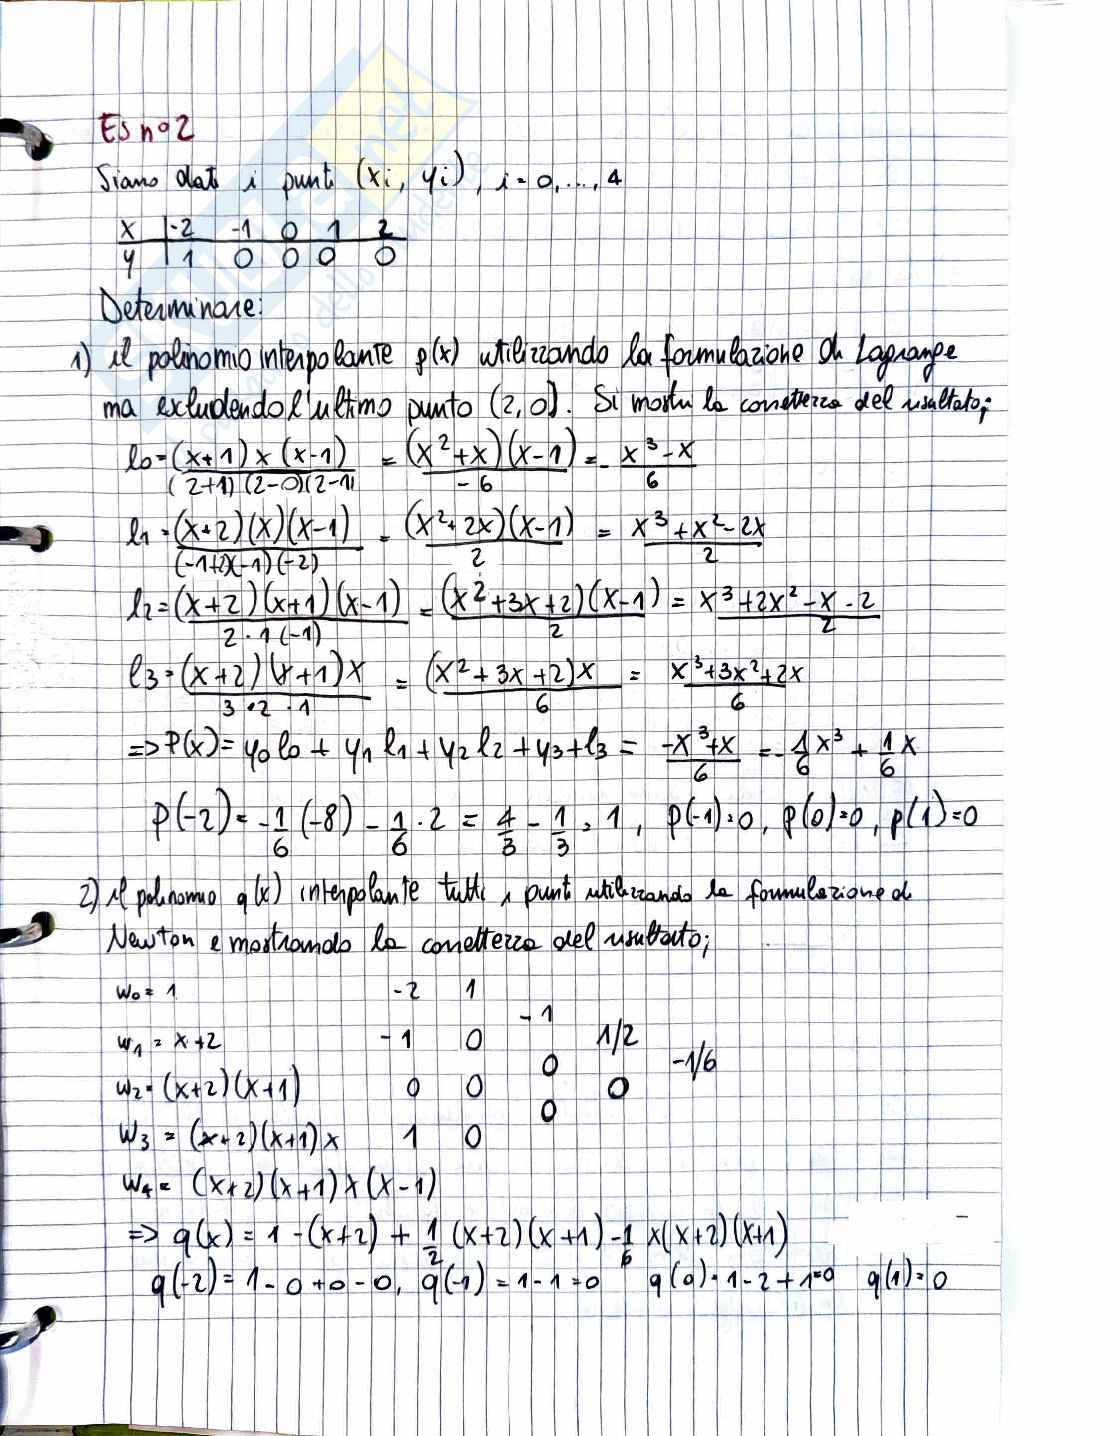 ES n°2
Siano dati i punti (xi, yi), i = 0, ..., 4
x | -2 -1 0 1 2
y | 1 0 0 0 0
Determinare:
1) il polinomio interpolante p(x) utilizzando la formulazione di Lagrange
ma excludendo l'ultimo punto (2,0). Si mostri la correttezza del risultato;
l0 = (x+1)x(x-1) / (2+1)(2-0)(2-1) = (x²+x)(x-1) / -6 = - x³-x / 6
l1 = (x+2)(x)(x-1) / (-1+2)(-1)(-2) = (x²+2x)(x-1) / 2 = x³+x²-2x / 2
l2 = (x+2)(x+1)(x-1) / 2·1(-1) = (x²+3x+2)(x-1) / 2 = x³+2x²-x-2 / 2
l3 = (x+2)(x+1)x / 3·2·1 = (x²+3x+2)x / 6 = x³+3x²+2x / 6
=> P(x) = y0l0 + y1l1 + y2l2 + y3+l3 = -x³+x / 6 = -1/6 x³ + 1/6 x
P(-2) = -1/6 (-8) - 1/6 · 2 = 4/3 - 1/3 = 1, p(-1)=0, p(0)=0, p(1)=0
2) il polinomio q(x) interpolante tutti i punti utilizzando la formulazione di
Newton e mostrando la correttezza del risultato;
w0 = 1 -2 1
-1
w1 = x+2 -1 0 1/2
0 -1/6
w2 = (x+2)(x+1) 0 0 0
0
w3 = (x+2)(x+1)x 1 0
w4 = (x+2)(x+1)x(x-1)
=> q(x) = 1 -(x+2) + 1/2 (x+2)(x+1) - 1/6 x(x+2)(x+1)
q(-2) = 1 - 0 + 0 - 0, q(-1) = 1 - 1 = 0 q(0) = 1 - 2 + 1 = 0 q(1) = 0